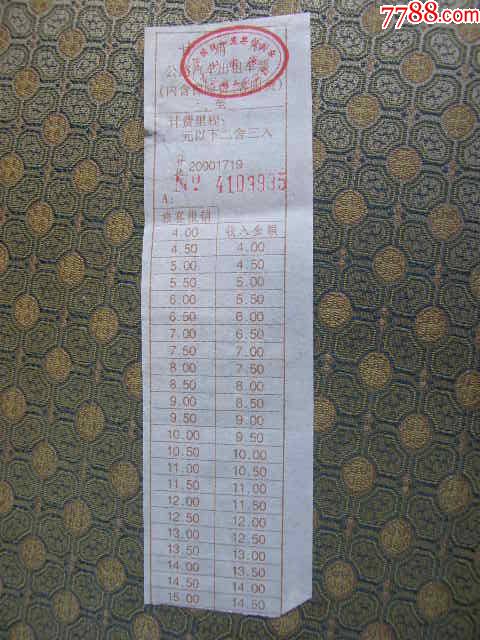 7788.com
公路汽车出租车票
计费里程:
元以下二舍三入
20001719
№ 4109935
A:
乘客报销 收入金额
4.00
4.50 4.00
5.00 4.50
5.50 5.00
6.00 5.50
6.50 6.00
7.00 6.50
7.50 7.00
8.00 7.50
8.50 8.00
9.00 8.50
9.50 9.00
10.00 9.50
10.50 10.00
11.00 10.50
11.50 11.00
12.00 11.50
12.50 12.00
13.00 12.50
13.50 13.00
14.00 13.50
14.50 14.00
15.00 14.50